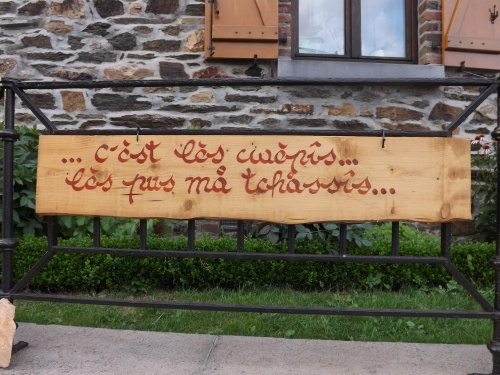 ... c'èst lès cwèpîs...
lès pus må tchåssîs...